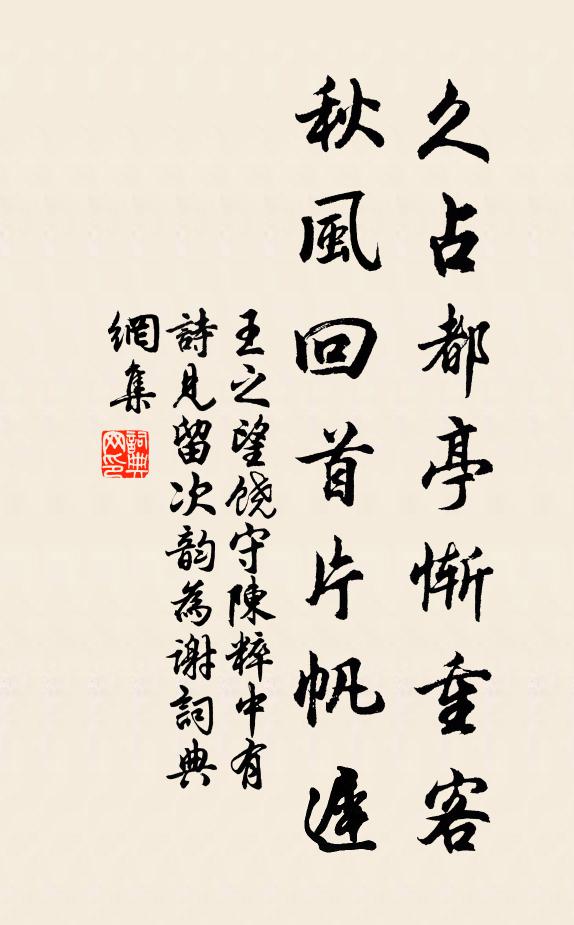 久占都亭慚重客
秋風回首片帆遲
王之望饒守陳粹中有
詩見留次韵為謝詞典
網集
詞典網印